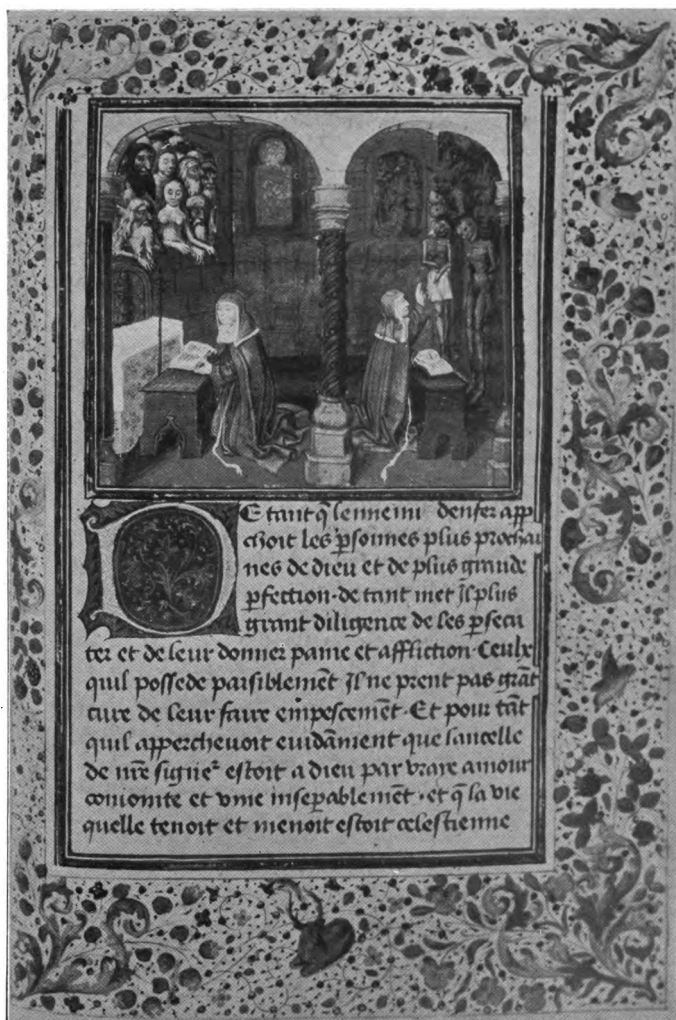 DE tant q̃ lennemi denfer app̃
choit les p̃sonnes plus prochai
nes de dieu et de plus grande
p̃fection · de tant met Jl plus
grant diligence de les p̃secu
ter et de leur donner paine et affliction · Ceulx
quil possede paisiblemẽt Jl ne prent pas grãt
cure de leur faire empeschemẽt · Et pour tãt
quil apperchevoit evidãment que lancelle
de nr̃e signeʳ estoit a dieu par vraye amour
coniointe et vnie insep̃ablement · et q̃ la vie
quelle tenoit et menoit estoit celestienne